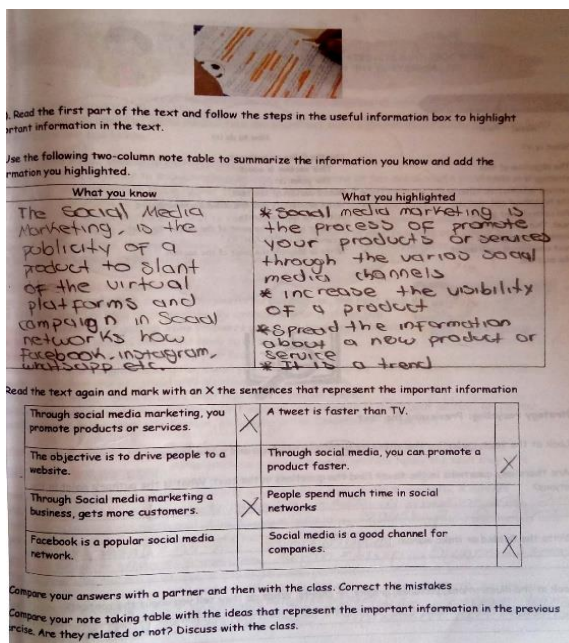 ). Read the first part of the text and follow the steps in the useful information box to highlight
ortant information in the text.
Use the following two-column note table to summarize the information you know and add the
rmation you highlighted.
What you know
The Social Media
Marketing, is the
publicity of a
product to slant
of the virtual
platforms and
campaign in Social
networks how
Facebook, instagram,
whatsapp etc.
What you highlighted
* Social media marketing is
the process of promote
your products or services
through the varios social
media channels
* increase the visibility
of a product
* Spread the information
about a new product or
service
* It is a trend
Read the text again and mark with an X the sentences that represent the important information
Through social media marketing, you
promote products or services.
X
A tweet is faster than TV.
The objective is to drive people to a
website.
Through social media, you can promote a
product faster.
X
Through Social media marketing a
business, gets more customers.
X
People spend much time in social
networks
Facebook is a popular social media
network.
Social media is a good channel for
companies.
X
Compare your answers with a partner and then with the class. Correct the mistakes
Compare your note taking table with the ideas that represent the important information in the previous
ercise. Are they related or not? Discuss with the class.